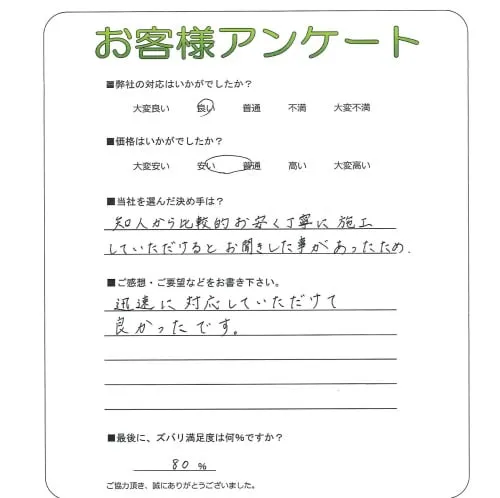 お客様アンケート
■弊社の対応はいかがでしたか？
大変良い 良い 普通 不満 大変不満
■価格はいかがでしたか？
大変安い 安い 普通 高い 大変高い
■当社を選んだ決め手は？
知人から比較的お安く丁寧に施工
していただけるとお聞きした事があったため.
■ご感想・ご要望などをお書き下さい。
迅速に対応していただけて
良かったです。
■最後に、ズバリ満足度は何％ですか？
80 ％
ご協力頂き、誠にありがとうございました。